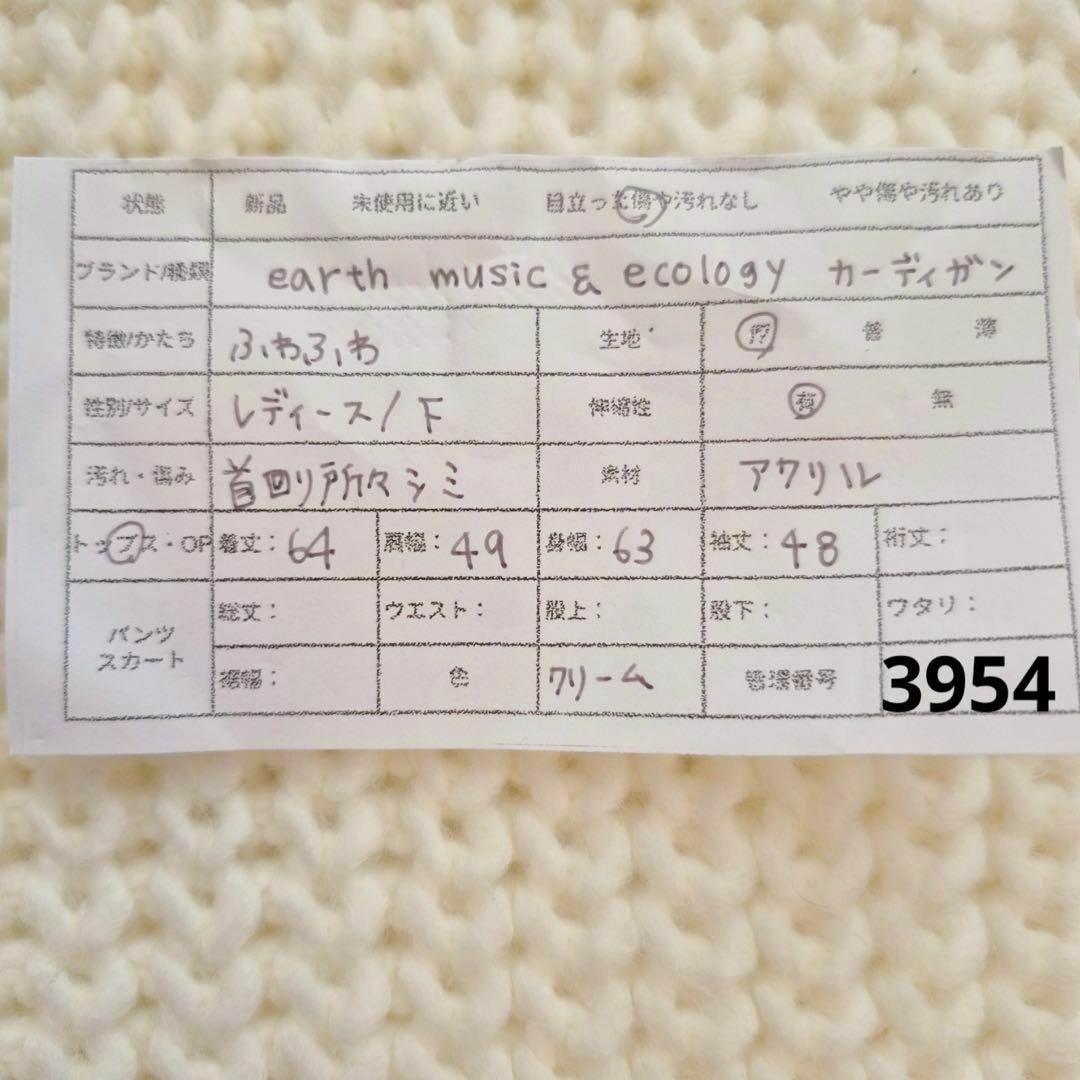 状態 新品 未使用に近い 目立った傷や汚れなし やや傷や汚れあり
ブランド/種類 earth music & ecology カーディガン
特徴/かたち ふわふわ 生地 厚 普 薄
性別/サイズ レディース/F 伸縮性 有 無
汚れ・傷み 首回り所々シミ 素材 アクリル
トップス・OP 着丈:64 肩幅:49 身幅:63 袖丈:48 裄丈:
パンツ スカート
総丈: ウエスト: 股上: 股下: ワタリ:
裾幅: 色 クリーム 管理番号 3954